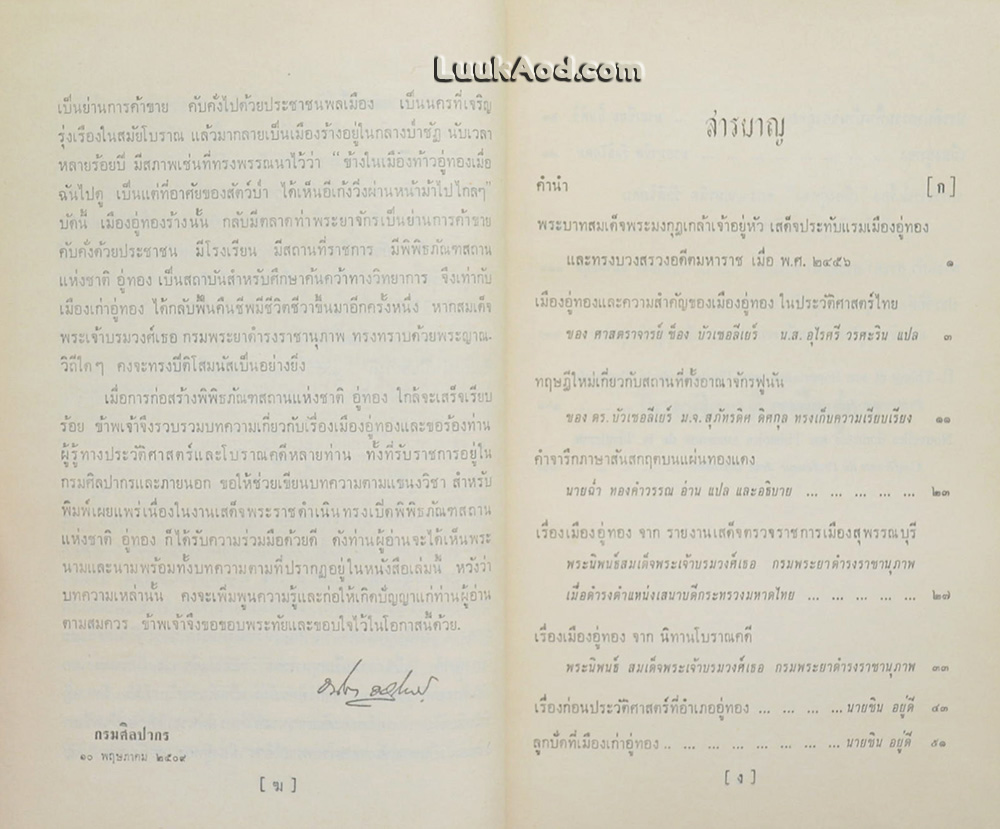 LuukAod.com
เป็นย่านการค้าขาย คับคั่งไปด้วยประชาชนพลเมือง เป็นนครที่เจริญ
รุ่งเรืองในสมัยโบราณ แล้วมากลายเป็นเมืองร้างอยู่ในกลางป่าชัฏ นับเวลา
หลายร้อยปี มีสภาพเช่นที่ทรงพรรณนาไว้ว่า “ข้างในเมืองท้าวอู่ทองเมื่อ
ฉันไปดู เป็นแต่ที่อาศัยของสัตว์ป่า ได้เห็นอีเก้งวิ่งผ่านหน้าม้าไปใกล้ๆ”
บัดนี้ เมืองอู่ทองร้างนั้น กลับมีตลาดท่าพระยาจักรเป็นย่านการค้าขาย
คับคั่งด้วยประชาชน มีโรงเรียน มีสถานที่ราชการ มีพิพิธภัณฑสถาน
แห่งชาติ อู่ทอง เป็นสถาบันสำหรับศึกษาค้นคว้าทางวิทยาการ จึงเท่ากับ
เมืองเก่าอู่ทอง ได้กลับฟื้นคืนชีพมีชีวิตชีวาขึ้นมาอีกครั้งหนึ่ง หากสมเด็จ
พระเจ้าบรมวงศ์เธอ กรมพระยาดำรงราชานุภาพ ทรงทราบด้วยพระญาณ-
วิถีใดๆ คงจะทรงปีติโสมนัสเป็นอย่างยิ่ง
เมื่อการก่อสร้างพิพิธภัณฑสถานแห่งชาติ อู่ทอง ใกล้จะเสร็จเรียบ
ร้อย ข้าพเจ้าจึงรวบรวมบทความเกี่ยวกับเรื่องเมืองอู่ทองและขอร้องท่าน
ผู้รู้ทางประวัติศาสตร์และโบราณคดีหลายท่าน ทั้งที่รับราชการอยู่ใน
กรมศิลปากรและภายนอก ขอให้ช่วยเขียนบทความตามแขนงวิชา สำหรับ
พิมพ์เผยแพร่เนื่องในงานเสด็จพระราชดำเนินทรงเปิดพิพิธภัณฑสถาน
แห่งชาติ อู่ทอง ก็ได้รับความร่วมมือด้วยดี ดังท่านผู้อ่านจะได้เห็นพระ
นามและนามพร้อมทั้งบทความตามที่ปรากฏอยู่ในหนังสือเล่มนี้ หวังว่า
บทความเหล่านั้น คงจะเพิ่มพูนความรู้และก่อให้เกิดปัญญาแก่ท่านผู้อ่าน
ตามสมควร ข้าพเจ้าจึงขอขอบพระทัยและขอบใจไว้ในโอกาสนี้ด้วย.
กรมศิลปากร
๑๐ พฤษภาคม ๒๕๐๙
[ ฆ ]
สารบาญ
คำนำ [ ก ]
พระบาทสมเด็จพระมงกุฎเกล้าเจ้าอยู่หัว เสด็จประทับแรมเมืองอู่ทอง
และทรงบวงสรวงอดีตมหาราช เมื่อ พ.ศ. ๒๔๕๖ ๑
เมืองอู่ทองและความสำคัญของเมืองอู่ทอง ในประวัติศาสตร์ไทย
ของ ศาสตราจารย์ ช็อง บัวเซอลีเยร์ น.ส. อุไรศรี วรศะริน แปล ๓
ทฤษฎีใหม่เกี่ยวกับสถานที่ตั้งอาณาจักรฟูนัน
ของ ดร. บัวเซอลีเยร์ ม.จ. สุภัทรดิศ ดิศกุล ทรงเก็บความเรียบเรียง ๑๑
คำจารึกภาษาสันสกฤตบนแผ่นทองแดง
นายฉ่ำ ทองคำวรรณ อ่าน แปล และอธิบาย ... ... ... ... ... ๒๓
เรื่องเมืองอู่ทอง จาก รายงานเสด็จตรวจราชการเมืองสุพรรณบุรี
พระนิพนธ์สมเด็จพระเจ้าบรมวงศ์เธอ กรมพระยาดำรงราชานุภาพ
เมื่อดำรงตำแหน่งเสนาบดีกระทรวงมหาดไทย ... ... ... ... ... ๒๗
เรื่องเมืองอู่ทอง จาก นิทานโบราณคดี
พระนิพนธ์ สมเด็จพระเจ้าบรมวงศ์เธอ กรมพระยาดำรงราชานุภาพ ๓๓
เรื่องก่อนประวัติศาสตร์ที่อำเภออู่ทอง ... ... ... ... นายชิน อยู่ดี ๔๓
ลูกปัดที่เมืองเก่าอู่ทอง ... ... ... ... ... ... ... ... นายชิน อยู่ดี ๕๑
[ ง ]